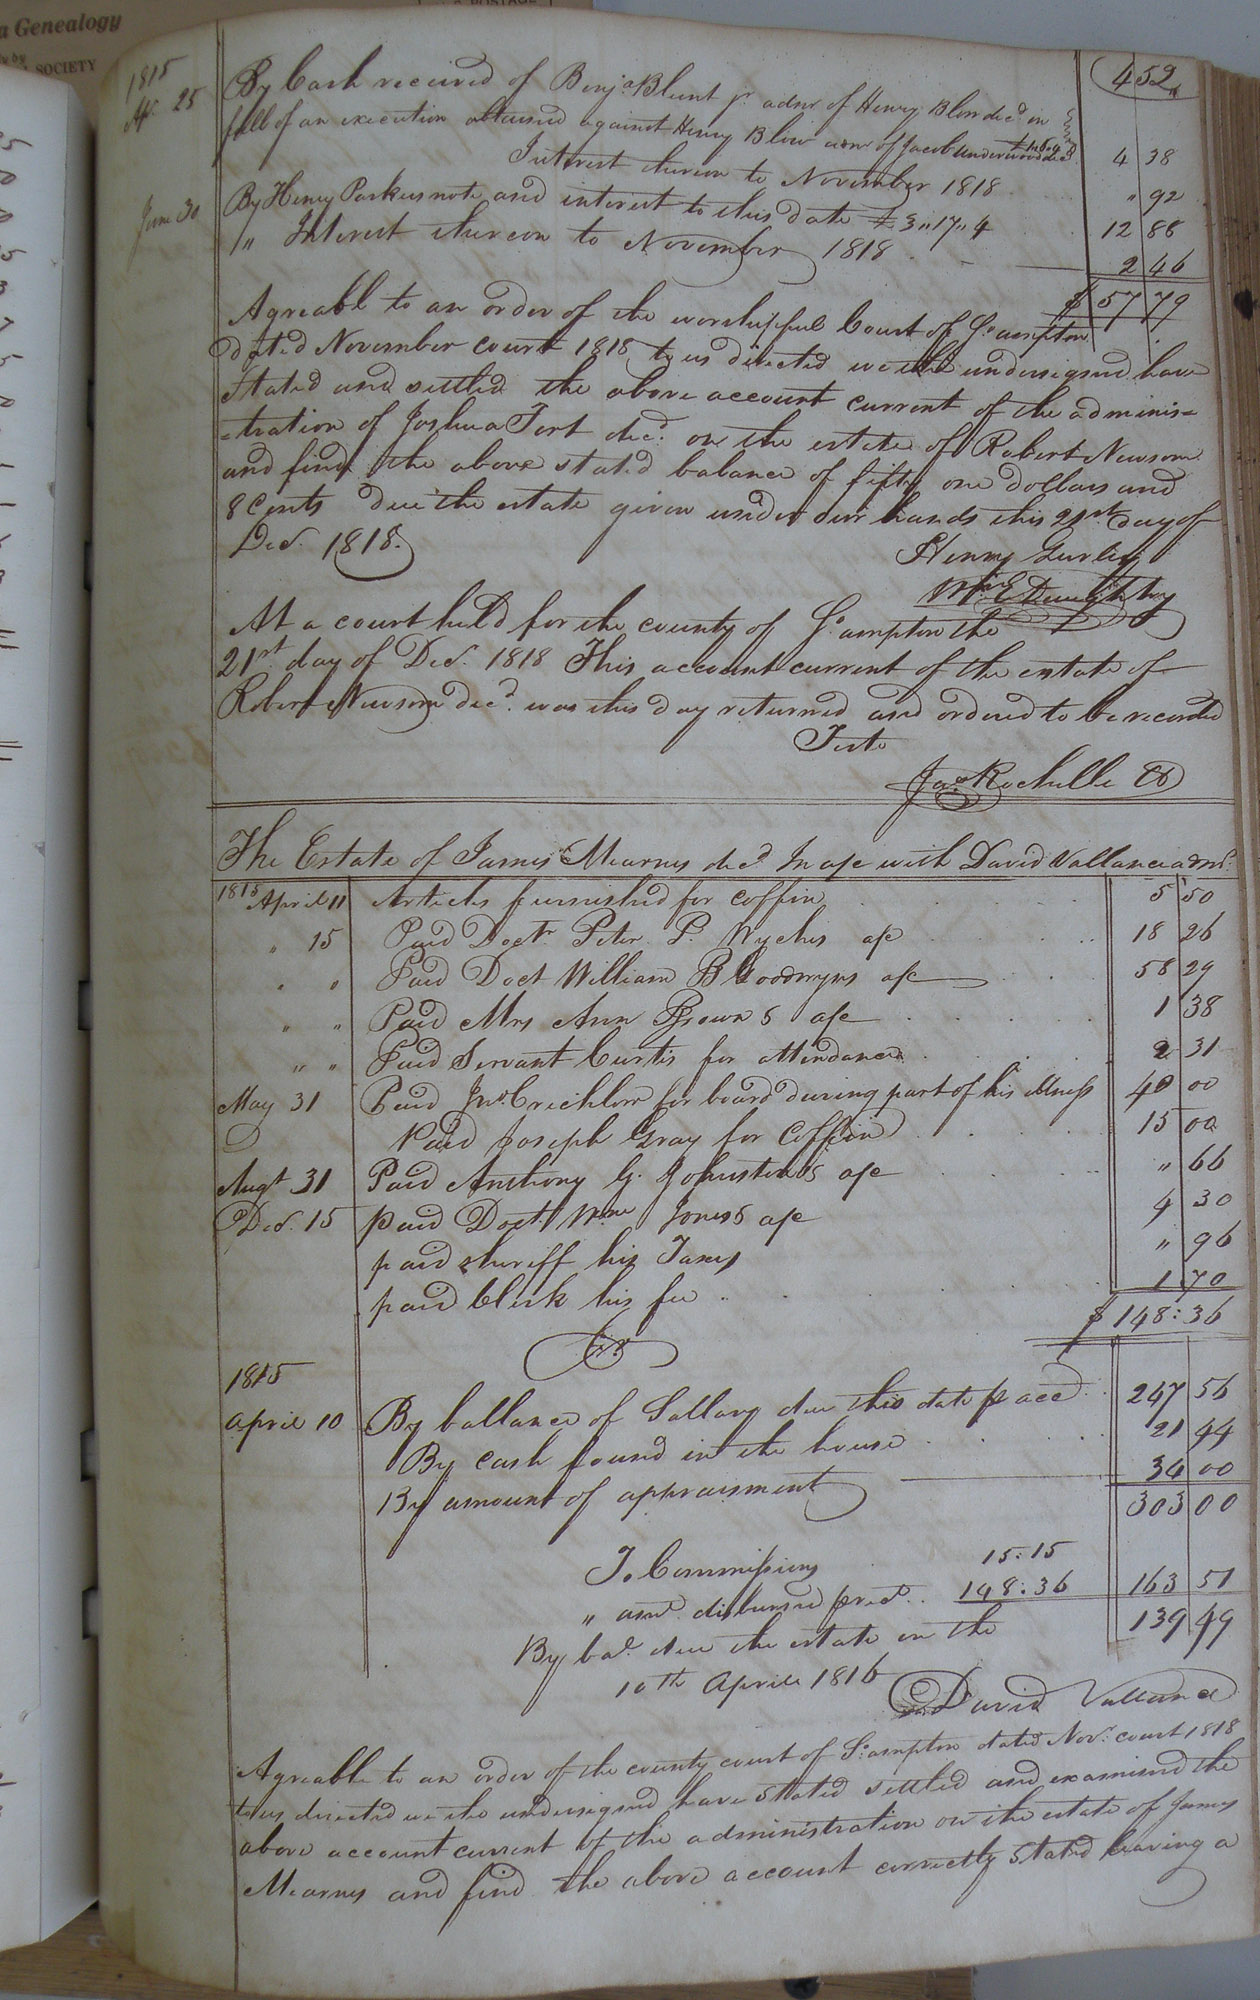 a Genealogy
SOCIETY
452
1815
Ap. 25 By Cash received of Benja. Blunt jr. admr of Henry Blow decd. in
full of an execution obtained against Henry Blow admr of Jacob Underwood decd. 4 38
Interest thereon to November 1818 " 92
June 30 By Henry Parkers note and interest to this date £3"17"4 12 88
" Interest thereon to November 1818 2 46
$ 57 79
Agreable to an order of the worshipful Court of So.ampton
dated November court 1818 to us directed we the undersigned have
stated and settled the above account current of the adminis=
=tration of Joshua Fort decd. on the estate of Robert Newsom
and find the above stated balance of fifty one dollars and
8 Cents due the estate given under our hands this 21st day of
Decr. 1818.
Henry Gurley
Wm E Daughtry
At a court held for the county of So.ampton the
21st. day of Decr. 1818 This account current of the estate of
Robert Newsom decd. was this day returned and ordered to be recorded
Teste
Jas. Rochelle CC
The Estate of James Mearns decd In a/c with David Vallance admr.
1815 April 11 Articles furnished for coffin 5 50
" 15 Paid Doctr. Peter P. Wyches a/c 18 26
" " Paid Doct William B Goodwyns a/c 58 29
" " Paid Mrs Ann Browns a/c 1 38
" " Paid Servant Curtis for attendance 2 31
May 31 Paid Jno. Crichlow for board during part of his illness 40 00
Paid Joseph Gray for Coffin 15 00
Augt 31 Paid Anthony G. Johnstons a/c " 66
Decr. 15 paid Doct. Wm Jones a/c 4 30
paid sheriff his Taxes " 96
paid Clerk his fee 1 70
$ 148:36
Cr.
1815
April 10 By ballance of Sallary due this date p acct. 247 56
By cash found in the house 21 44
By amount of appraisment 34 00
303 00
To Commissions 15:15
" amt. disbursed pred. 148:36 163 51
By bal. due the estate on the 139 49
10th April 1816
David Vallance
Agreable to an order of the county court of So.ampton dated Novr. court 1818
to us directed we the undersigned have stated settled and examined the
above account current of the administration on the estate of James
Mearns and find the above account correctly stated leaving a